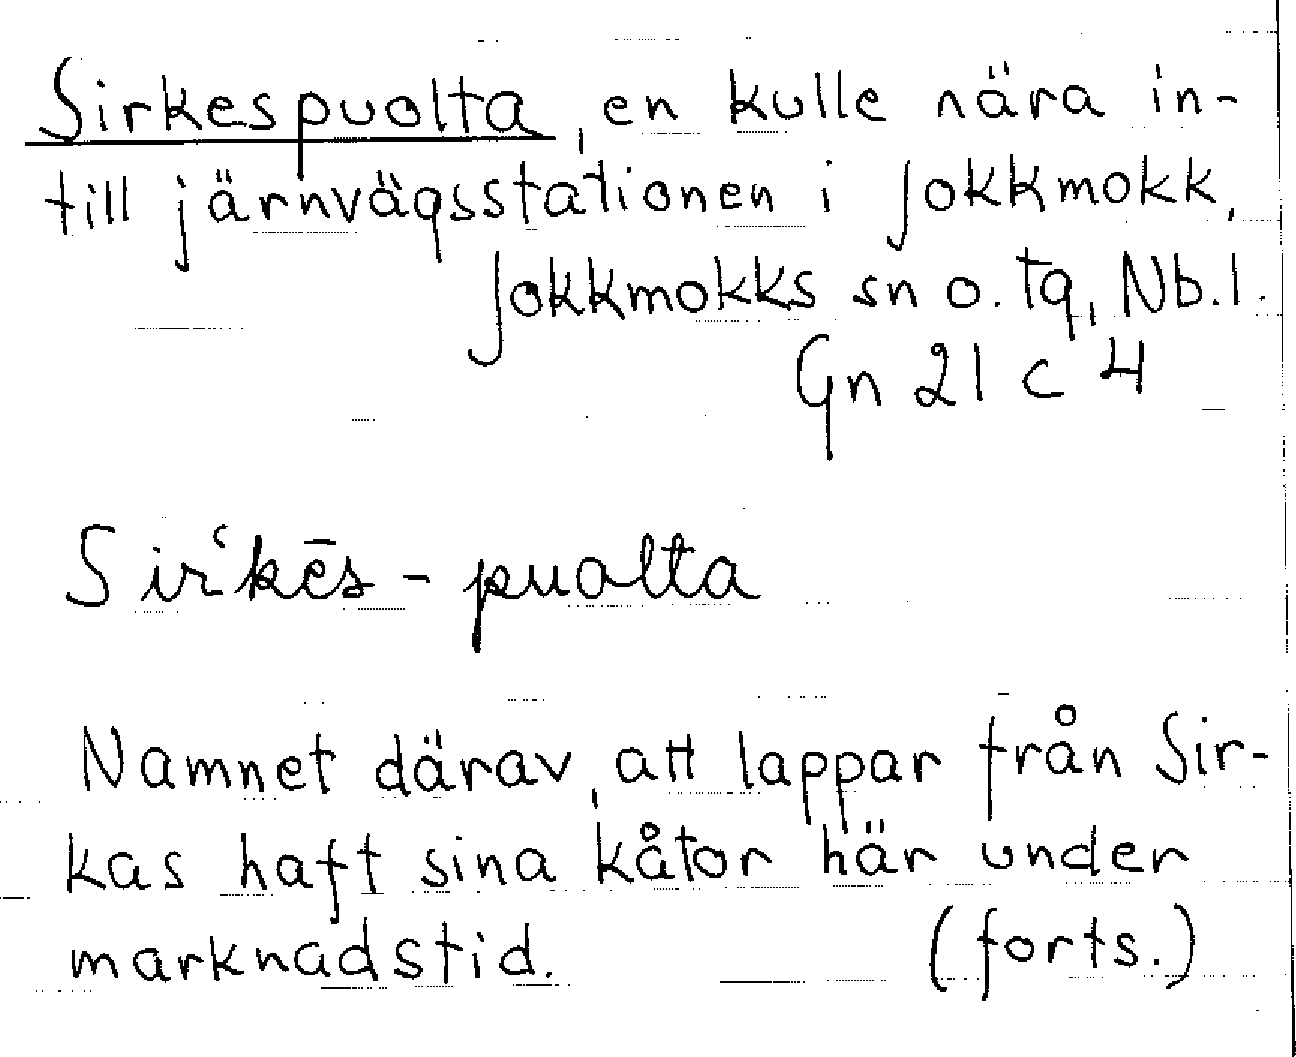 Sirkespuolta, en kulle nära in-
till järnvägsstationen i Jokkmokk,
Jokkmokks sn o. tg, Nb.l.
Gn 21 c 4
Sirʿkēs - puolta
Namnet därav, att lappar från Sir-
kas haft sina kåtor här under
marknadstid. (forts.)